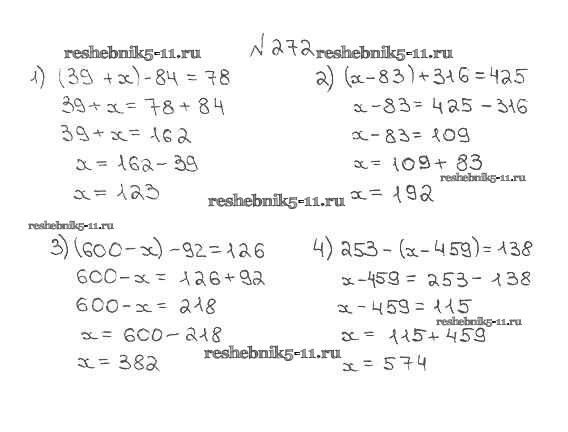 № 272
reshebnik5-11.ru reshebnik5-11.ru
1) (39 + x) - 84 = 78
39 + x = 78 + 84
39 + x = 162
x = 162 - 39
x = 123
2) (x - 83) + 316 = 425
x - 83 = 425 - 316
x - 83 = 109
x = 109 + 83
reshebnik5-11.ru
x = 192
reshebnik5-11.ru
reshebnik5-11.ru
3) (600 - x) - 92 = 126
600 - x = 126 + 92
600 - x = 218
x = 600 - 218
x = 382
4) 253 - (x - 459) = 138
x - 459 = 253 - 138
x - 459 = 115
reshebnik5-11.ru
x = 115 + 459
reshebnik5-11.ru
x = 574